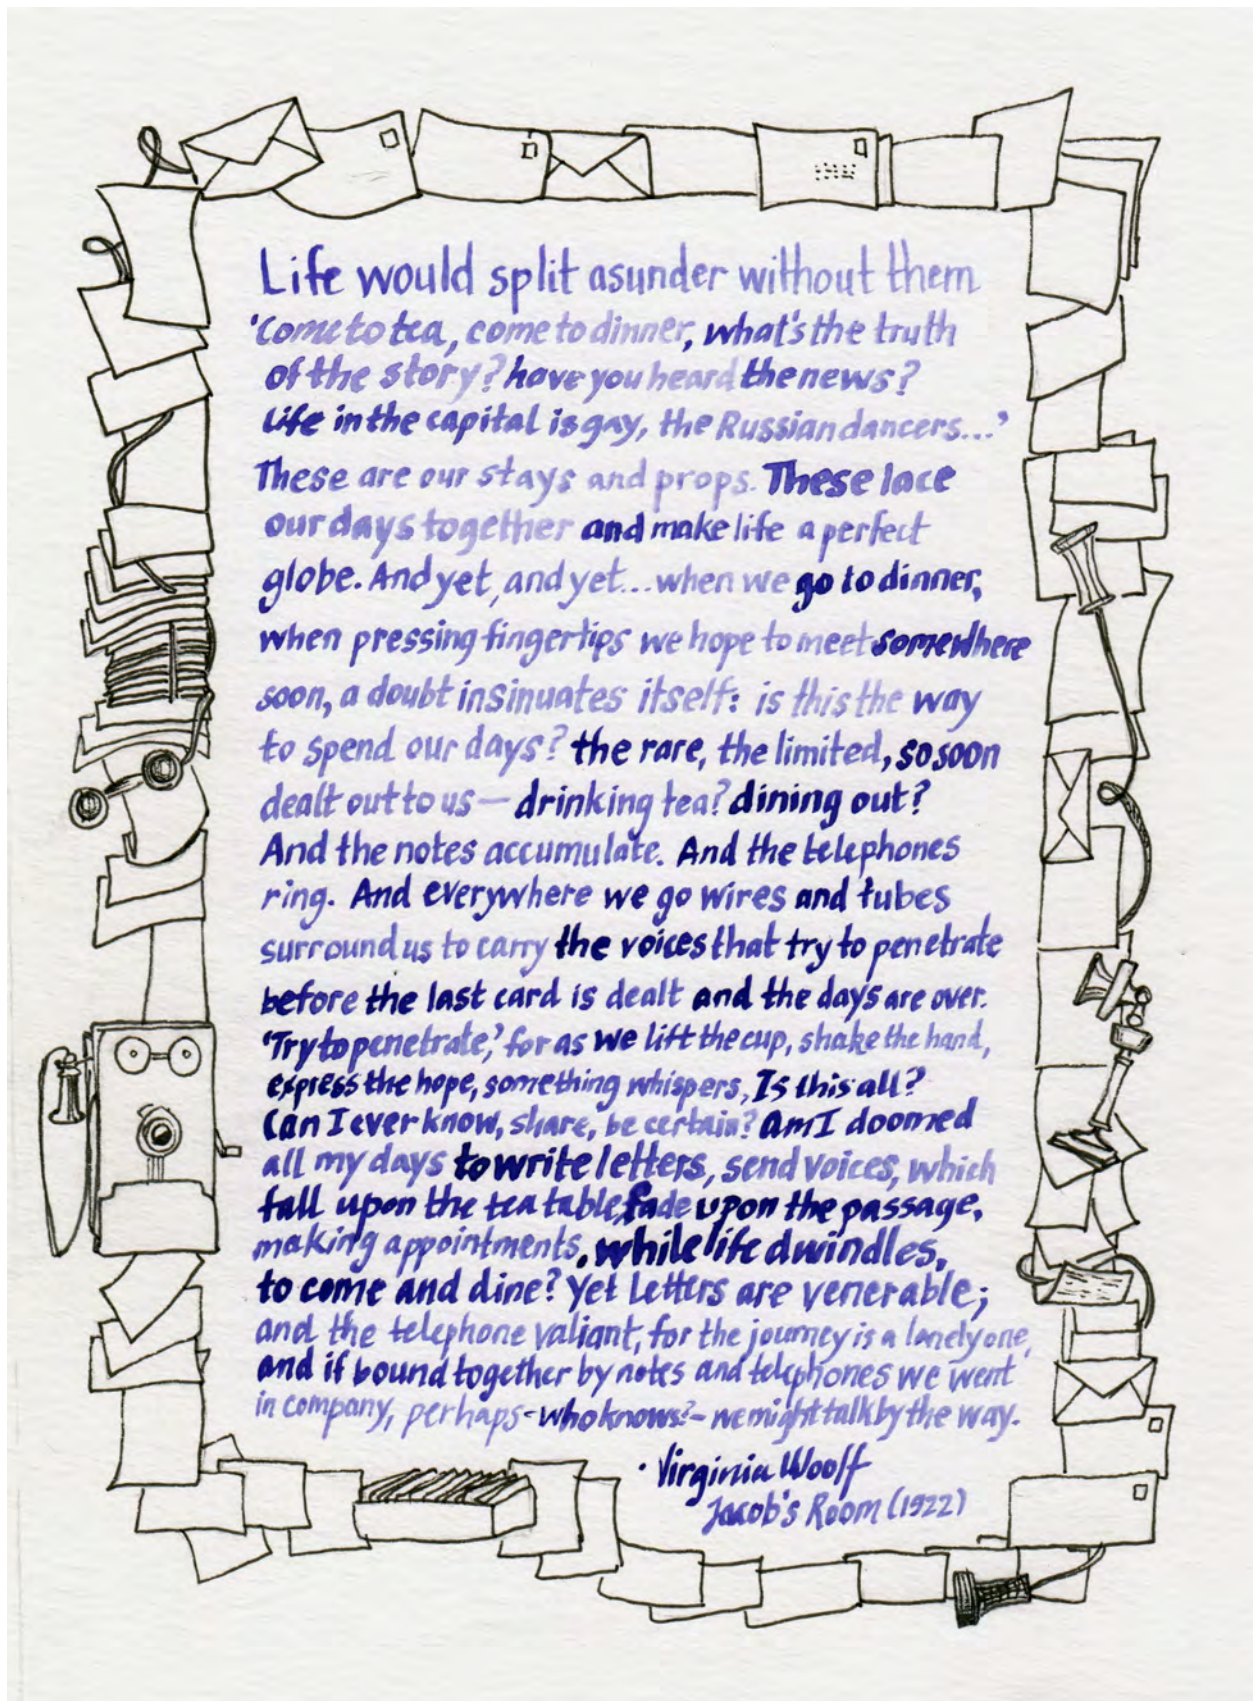 Life would split asunder without them
'Come to tea, come to dinner, what's the truth
of the story? have you heard the news?
Life in the capital is gay, the Russian dancers...'
These are our stays and props. These lace
our days together and make life a perfect
globe. And yet, and yet... when we go to dinner,
when pressing fingertips we hope to meet somewhere
soon, a doubt insinuates itself: is this the way
to spend our days? the rare, the limited, so soon
dealt out to us — drinking tea? dining out?
And the notes accumulate. And the telephones
ring. And everywhere we go wires and tubes
surround us to carry the voices that try to penetrate
before the last card is dealt and the days are over.
'Try to penetrate,' for as we lift the cup, shake the hand,
express the hope, something whispers, Is this all?
Can I ever know, share, be certain? Am I doomed
all my days to write letters, send voices, which
fall upon the tea table, fade upon the passage,
making appointments, while life dwindles,
to come and dine? Yet letters are venerable;
and the telephone valiant, for the journey is a lonely one,
and if bound together by notes and telephones we went
in company, perhaps - who knows? - we might talk by the way.
· Virginia Woolf
Jacob's Room (1922)